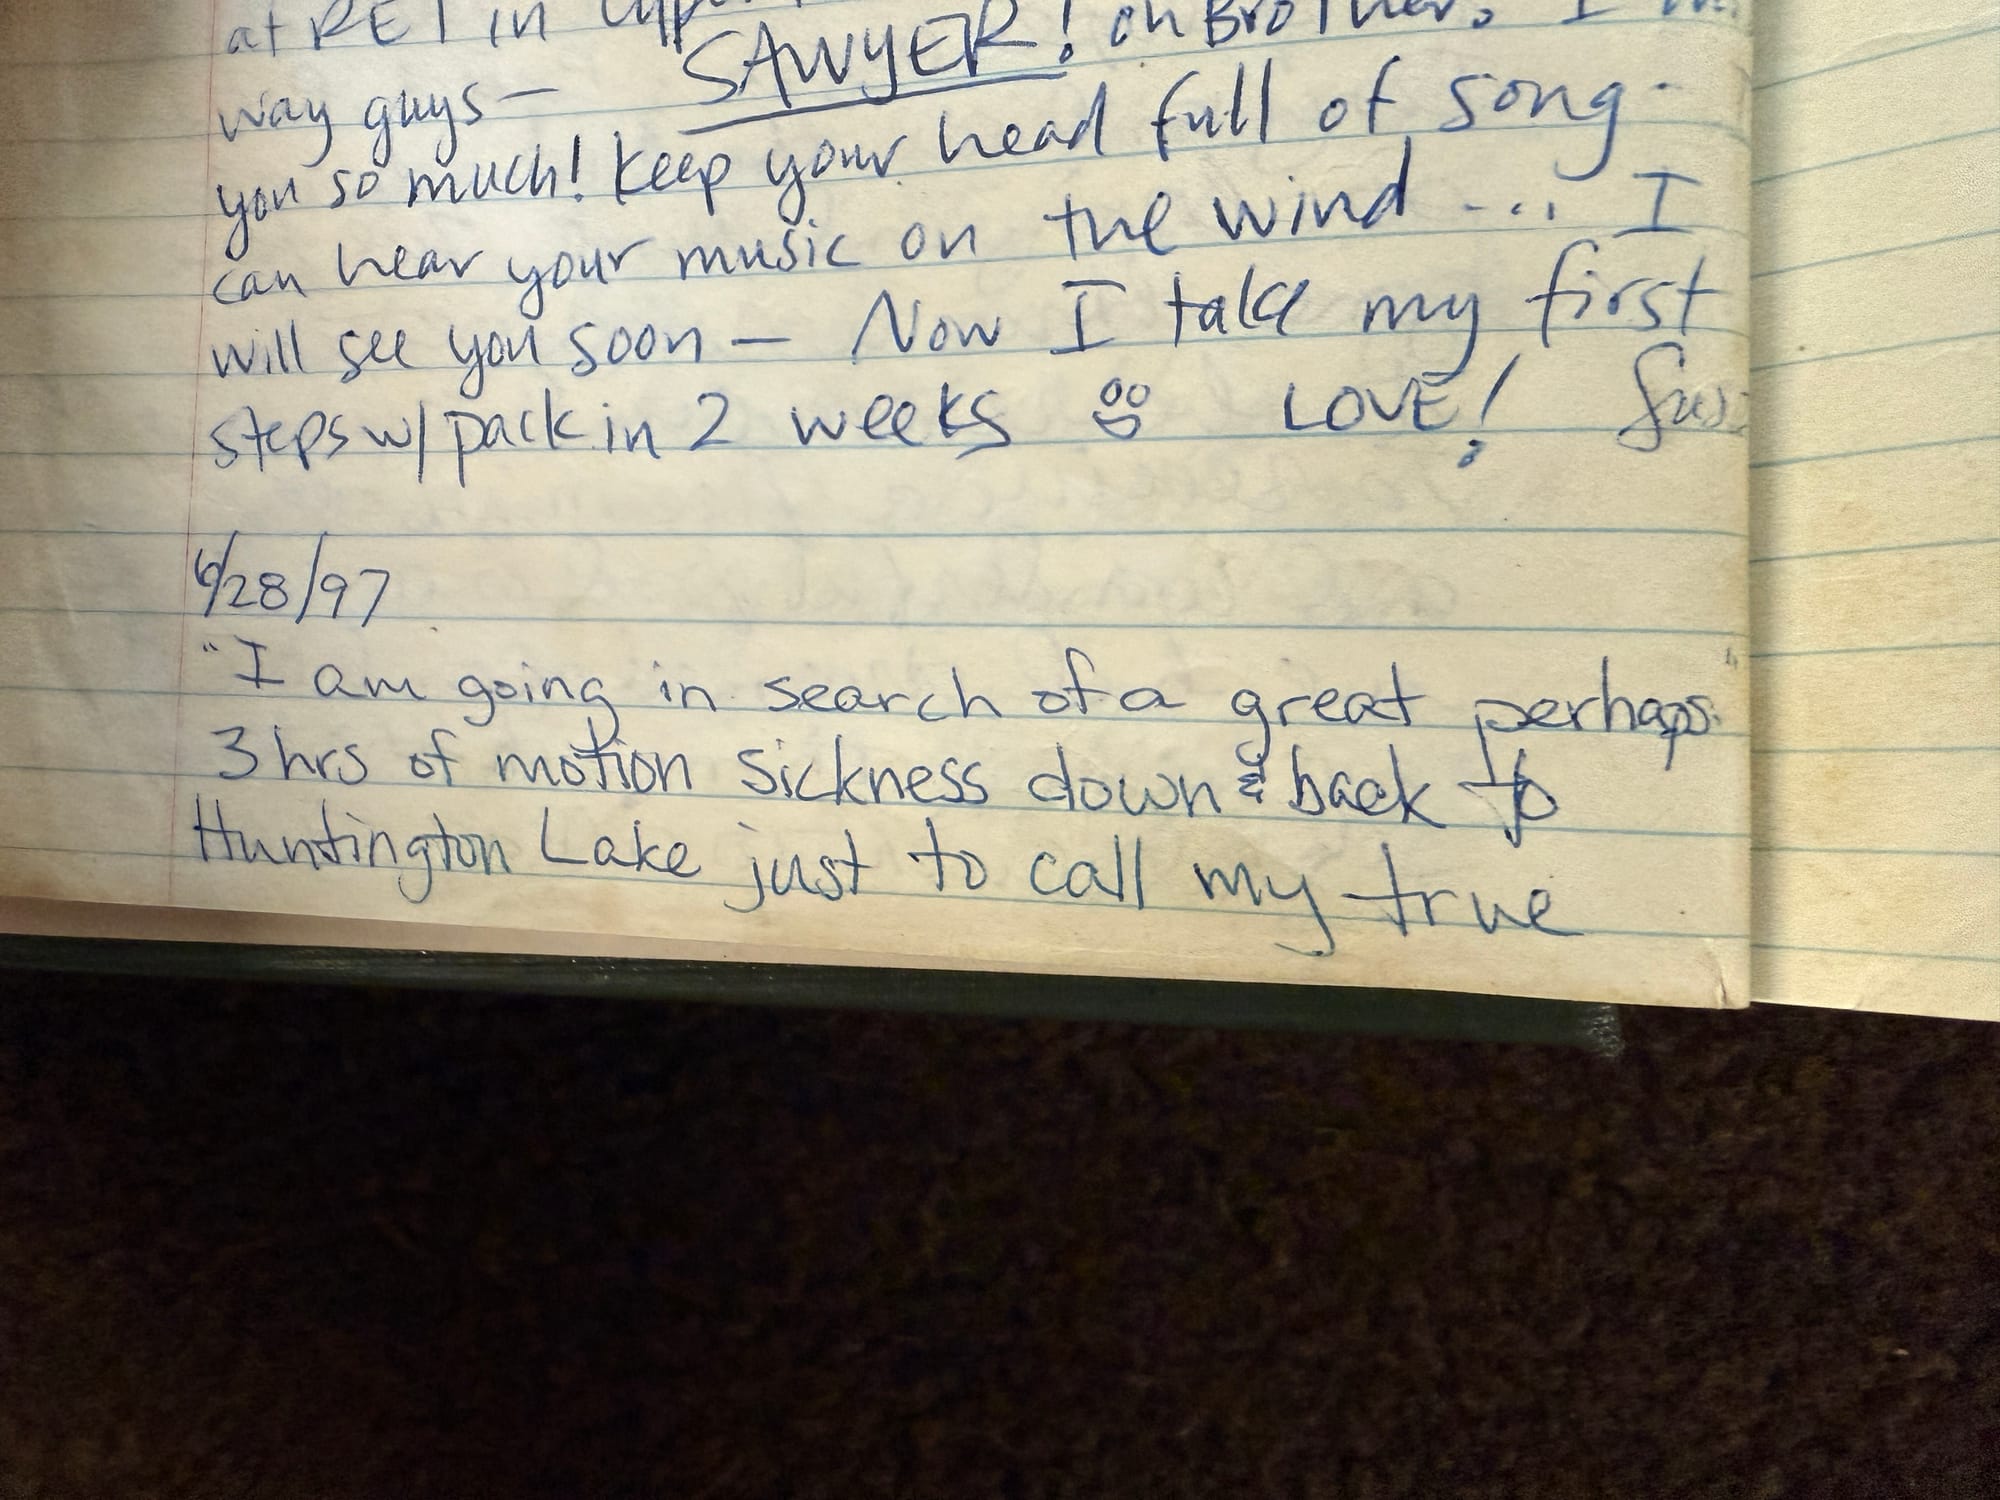 at RET in
SAWYER! Oh Brother, I
way guys—
you so much! Keep your head full of song-
can hear your music on the wind .... I
will see you soon — Now I take my first
steps w/ pack in 2 weeks LOVE!
6/28/97
"I am going in search of a great perhaps."
3 hrs of motion sickness down & back to
Huntington Lake just to call my true